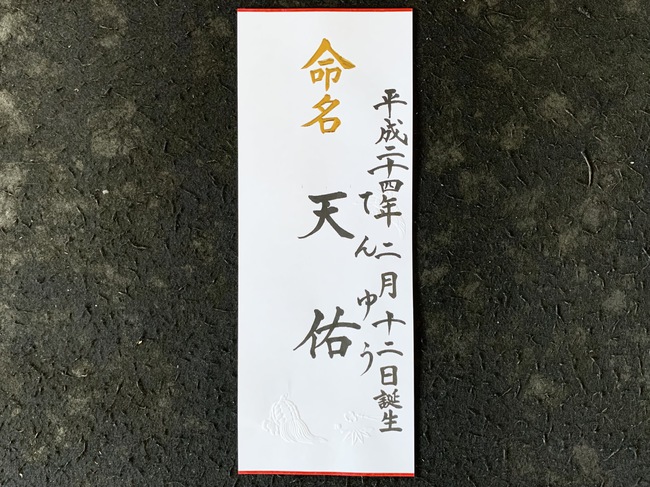 平成二十四年二月十二日誕生
命名
てんゆう
天佑